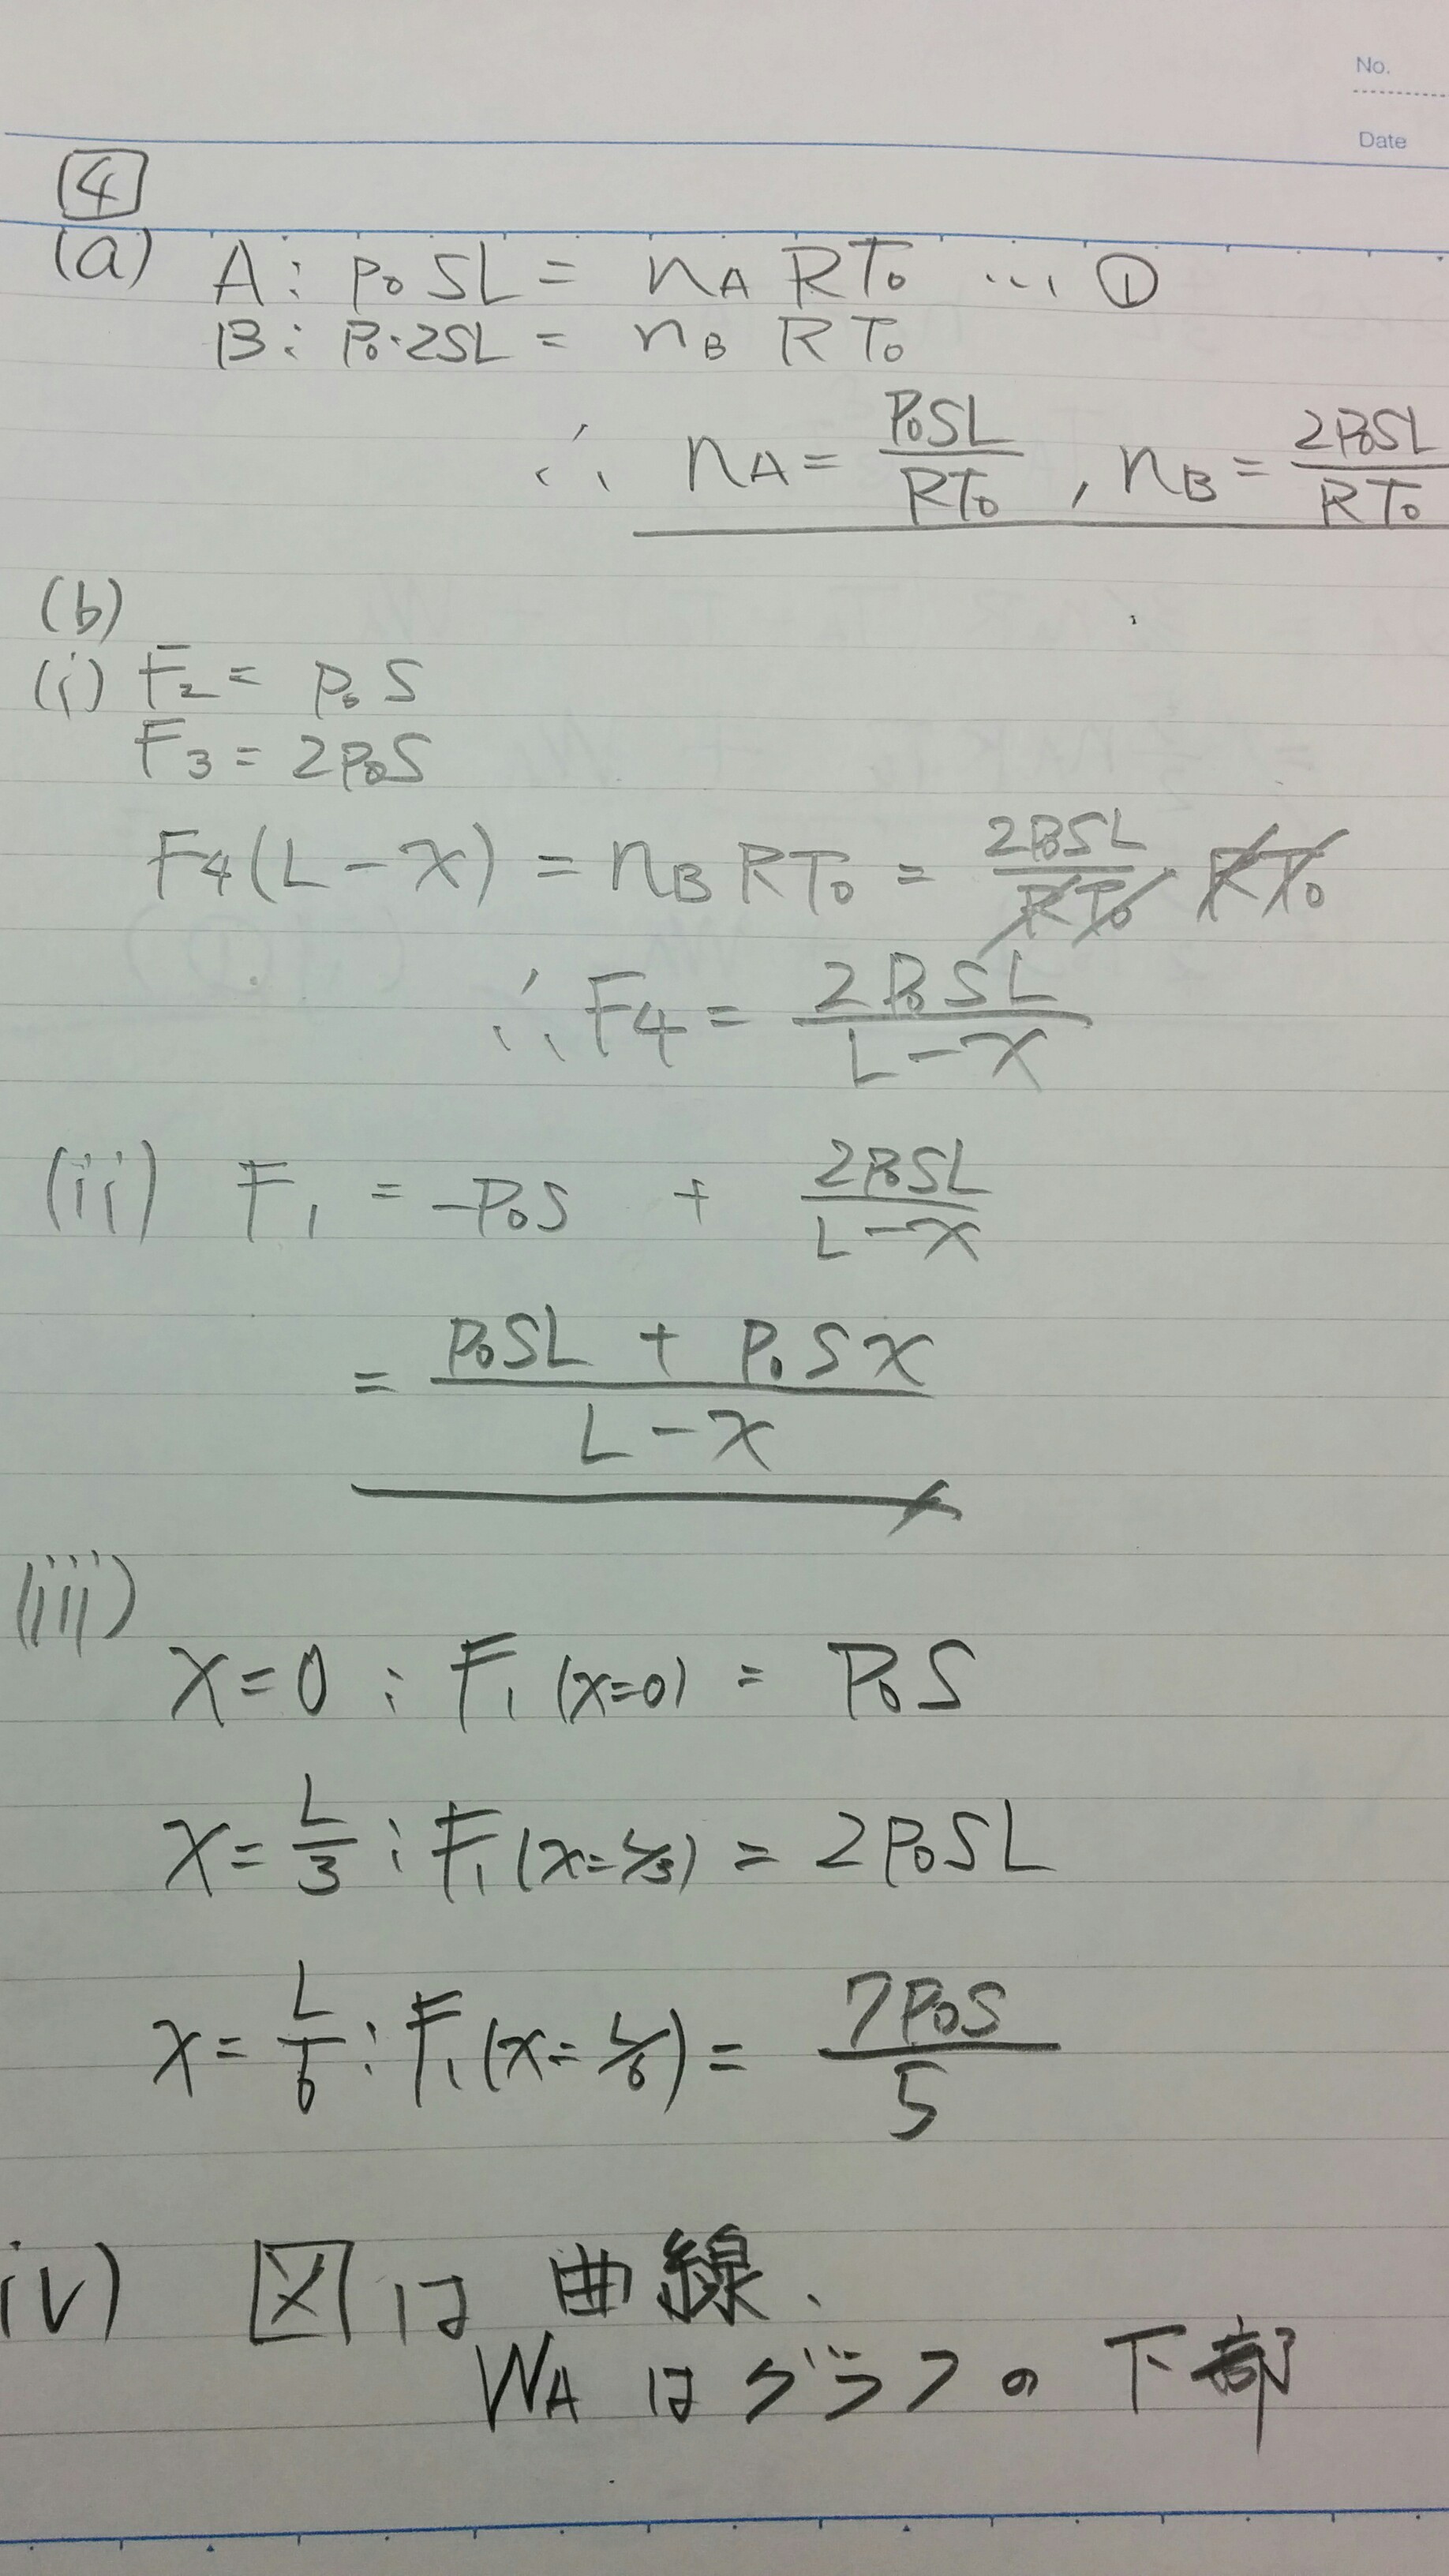 No.
Date
4
(a) A: P₀SL = nA RT₀ … ①
B: P₀·2SL = nB RT₀
∴ nA = P₀SL/RT₀ , nB = 2P₀SL/RT₀
(b)
(i) F₂ = P₀S
F₃ = 2P₀S
F₄(L-x) = nB RT₀ = 2P₀SL/RT₀ · RT₀
∴ F₄ = 2P₀SL/L-x
(ii) F₁ = -P₀S + 2P₀SL/L-x
= P₀SL + P₀Sx/L-x
(iii)
x=0 : F₁(x=0) = P₀S
x=L/3 : F₁(x=L/3) = 2P₀SL
x=L/6 : F₁(x=L/6) = 7P₀S/5
iv) 図は曲線、
WAはグラフの下部